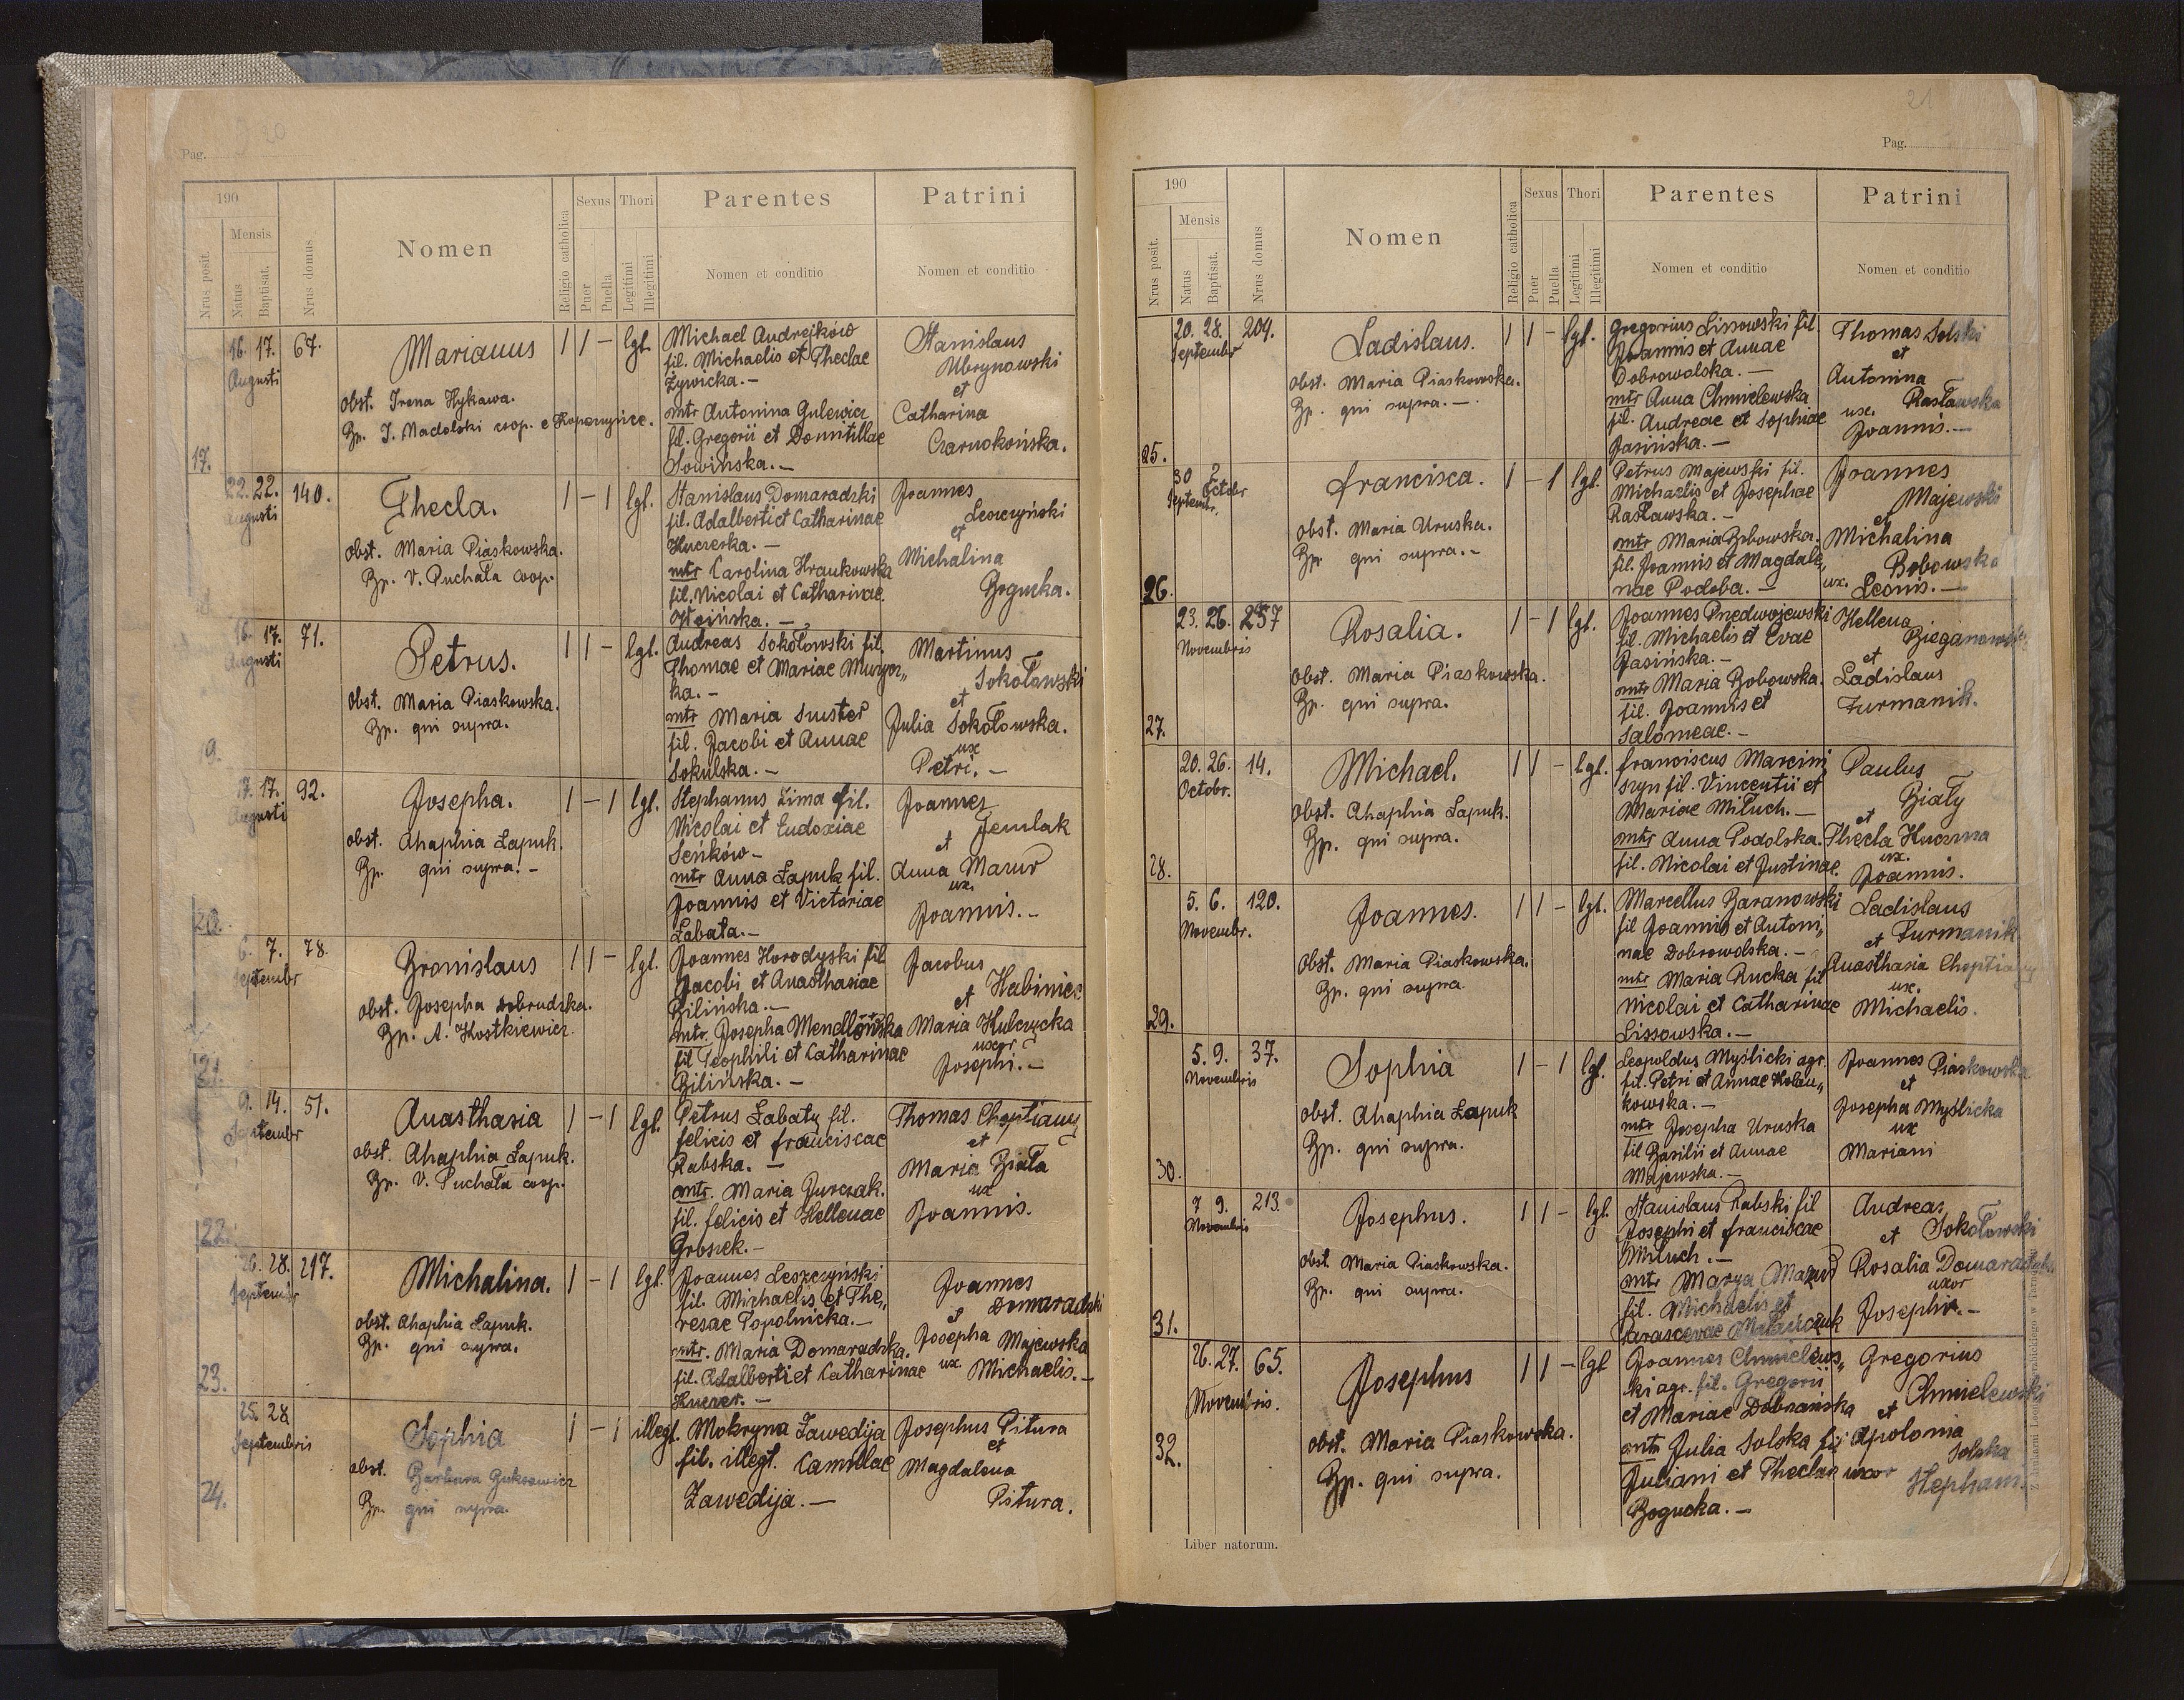 Pag.
190
Nrus posit.
Mensis
Natus
Baptisat.
Nrus domus
Nomen
Religio catholica
Sexus
Puer
Puella
Thori
Legitimi
Illegitimi
Parentes
Nomen et conditio
Patrini
Nomen et conditio
17.
16. 17.
Augusti
67.
Marianus
obst. Irena Hykawa.
Bp. J. Nadolski coop. e Kopeczyńce.
1 1 - lgl.
Michael Andrejków
fil. Michaelis et Theclae
Żywicka. -
mtr Antonina Gulewicz
fil. Gregorii et Domitillae
Sowińska. -
Stanislaus
Ubrynowski
et
Catharina
Czarnokońska.
22. 22.
Augusti
140.
Thecla.
obst. Maria Piaskowska.
Bp. V. Puchała coop.
1 - 1 lgl.
Stanislaus Domaradzki
fil. Adalberti et Catharinae
Kuczerka. -
mtr Carolina Hrankowska
fil. Nicolai et Catharinae
Joannes
Leszczyński
et
Michalina
Bogucka.
19.
16. 17.
Augusti
71.
Petrus.
obst. Maria Piaskowska.
Bp. qui supra.
1 1 - lgl.
Andreas Sokołowski fil.
Thomae et Mariae Muzyor„
ka. -
mtr Maria Suster
fil. Jacobi et Annae
Sokulska. -
Martinus
Sokołowski
et
Julia Sokołowska.
ux
Petri. -
20.
17. 17.
Augusti
92.
Josepha.
obst. Ahaphia Łapuk.
Bp. qui supra. -
1 - 1 lgl.
Stephanus Zima fil.
Nicolai et Eudoxiae
Seńków -
mtr Anna Łapuk fil.
Joannis et Victoriae
Łabata. -
Joannes
Jemlak
et
Anna Mazur
ux.
Joannis. -
21.
6. 7.
Septembr
78.
Bronislaus
obst. Josepha Dobrudzka.
Bp. A. Kostkiewicz
1 1 - lgl.
Joannes Horodyski fil
Jacobi et Anasthasiae
Bilińska. -
mtr. Josepha Mendlońska
fil Teophili et Catharinae
Bilińska. -
Jacobus
Habiniec
et
Maria Kulczycka
uxor
Josephi. -
22.
9. 14.
Septembr
51.
Anasthasia
obst. Ahaphia Łapuk.
Bp. V. Puchała coop.
1 - 1 lgl.
Petrus Łabaty fil.
felicis et franciscae
Rabska. -
mtr. Maria Jurczak.
fil. felicis et Hellenae
Grosiek. -
Thomas Choptiany
et
Maria Biała
ux
Joannis.
23.
26. 28.
Septembr
217.
Michalina.
obst. Ahaphia Łapuk.
Bp. qui supra.
1 - 1 lgl.
Joannes Leszczyński
fil. Michaelis et The„
resae Topolnicka. -
mtr. Maria Domaradzka.
fil. Adalberti et Catharinae
Kuczer. -
Joannes
Domaradzki
et
Josepha Majewska
ux. Michaelis. -
24.
25. 28
Septembris
Sophia
obst. Barbara Buksowicz
Bp. qui supra.
1 - 1 illegl.
Mokryna Zawedija
fil. illegt. Camillae
Zawedija. -
Josephus Pitura
et
Magdalena
Pitura.
21
Pag.
190
Nrus posit.
Mensis
Natus
Baptisat.
Nrus domus
Nomen
Religio catholica
Sexus
Puer
Puella
Thori
Legitimi
Illegitimi
Parentes
Nomen et conditio
Patrini
Nomen et conditio
25.
20. 28.
Septembr
204.
Ladislaus.
obst. Maria Piaskowska.
Bp. qui supra. -
1 1 - lgl.
Gregorius Lissowski fil
Joannis et Annae
Dobrowolska. -
mtr Anna Chmielewska
fil. Andreae et Sophiae
Jasińska. -
Thomas Solski
et
Antonina
Rasławska
ux.
Joannis. -
26.
30 2
Septembr. Octobr
francisca.
obst. Maria Uruska.
Bp. qui supra. -
1 - 1 lgl.
Petrus Majewski fil.
Michaelis et Josephae
Rasławska. -
mtr Maria Bobowska.
fil. Joannis et Magdale„
nae Podoba. -
Joannes
Majewski
et
Michalina
Bobowska
ux. Leonis. -
27.
23. 26.
Novembris
257
Rosalia.
obst. Maria Piaskowska.
Bp. qui supra.
1 - 1 lgl.
Joannes Przedwojewski
fil. Michaelis et Evae
Jasińska. -
mtr Maria Bobowska.
fil. Joannis et
Salomeae. -
Hellena
Bieganowska
et
Ladislaus
Furmanik.
28.
20. 26.
Octobr.
14.
Michael.
obst. Ahaphia Łapuk.
Bp. qui supra.
1 1 - lgl.
franciscus Marcini„
szyn fil. Vincentii et
Mariae Miłuch. -
mtr Anna Podolska.
fil. Nicolai et Justinae.
Paulus
Biały
et
Thecla Kuczma
ux.
Joannis.
29.
5. 6.
Novembr.
120.
Joannes.
obst. Maria Piaskowska.
Bp. qui supra.
1 1 - lgl.
Marcellus Baranowski
fil Joannis et Antoni„
nae Dobrowolska. -
mtr Maria Rucka fil
Nicolai et Catharinae
Lissowska. -
Ladislaus
Furmanik
et
Anasthasia Choptiany
ux.
Michaelis.
30.
5. 9.
Novembris
37.
Sophia
obst. Ahaphia Łapuk
Bp. qui supra.
1 - 1 lgl.
Leopoldus Myślicki agr.
fil. Petri et Annae Holeu„
kowska. -
mtr Josepha Uruska
fil Basilii et Annae
Majewska. -
Joannes Piaskowska
et
Josepha Myślicka
ux
Mariani
31.
7 9.
Novembris
213
Josephus.
obst. Maria Piaskowska.
Bp. qui supra.
1 1 - lgl.
Stanislaus Rabski fil
Josephi et franciscae
Miłuch. -
mtr Marya Mazur
fil. Michaelis et
Parascevae
Andreas
Sokołowski
et
Rosalia Domaradzka
uxor
Josephi. -
32.
26. 27.
Novembris.
65.
Josephus
obst. Maria Piaskowska.
Bp. qui supra.
1 1 - lgl
Joannes Chmielews„
ki agr. fil. Gregorii
et Mariae Dobrańska
mtr Julia Solska fil
Juliani et Theclae
Bogucka. -
Gregorius
Chmielewski
et
Apolonia
Solska
uxor
Stephani.
Liber natorum.